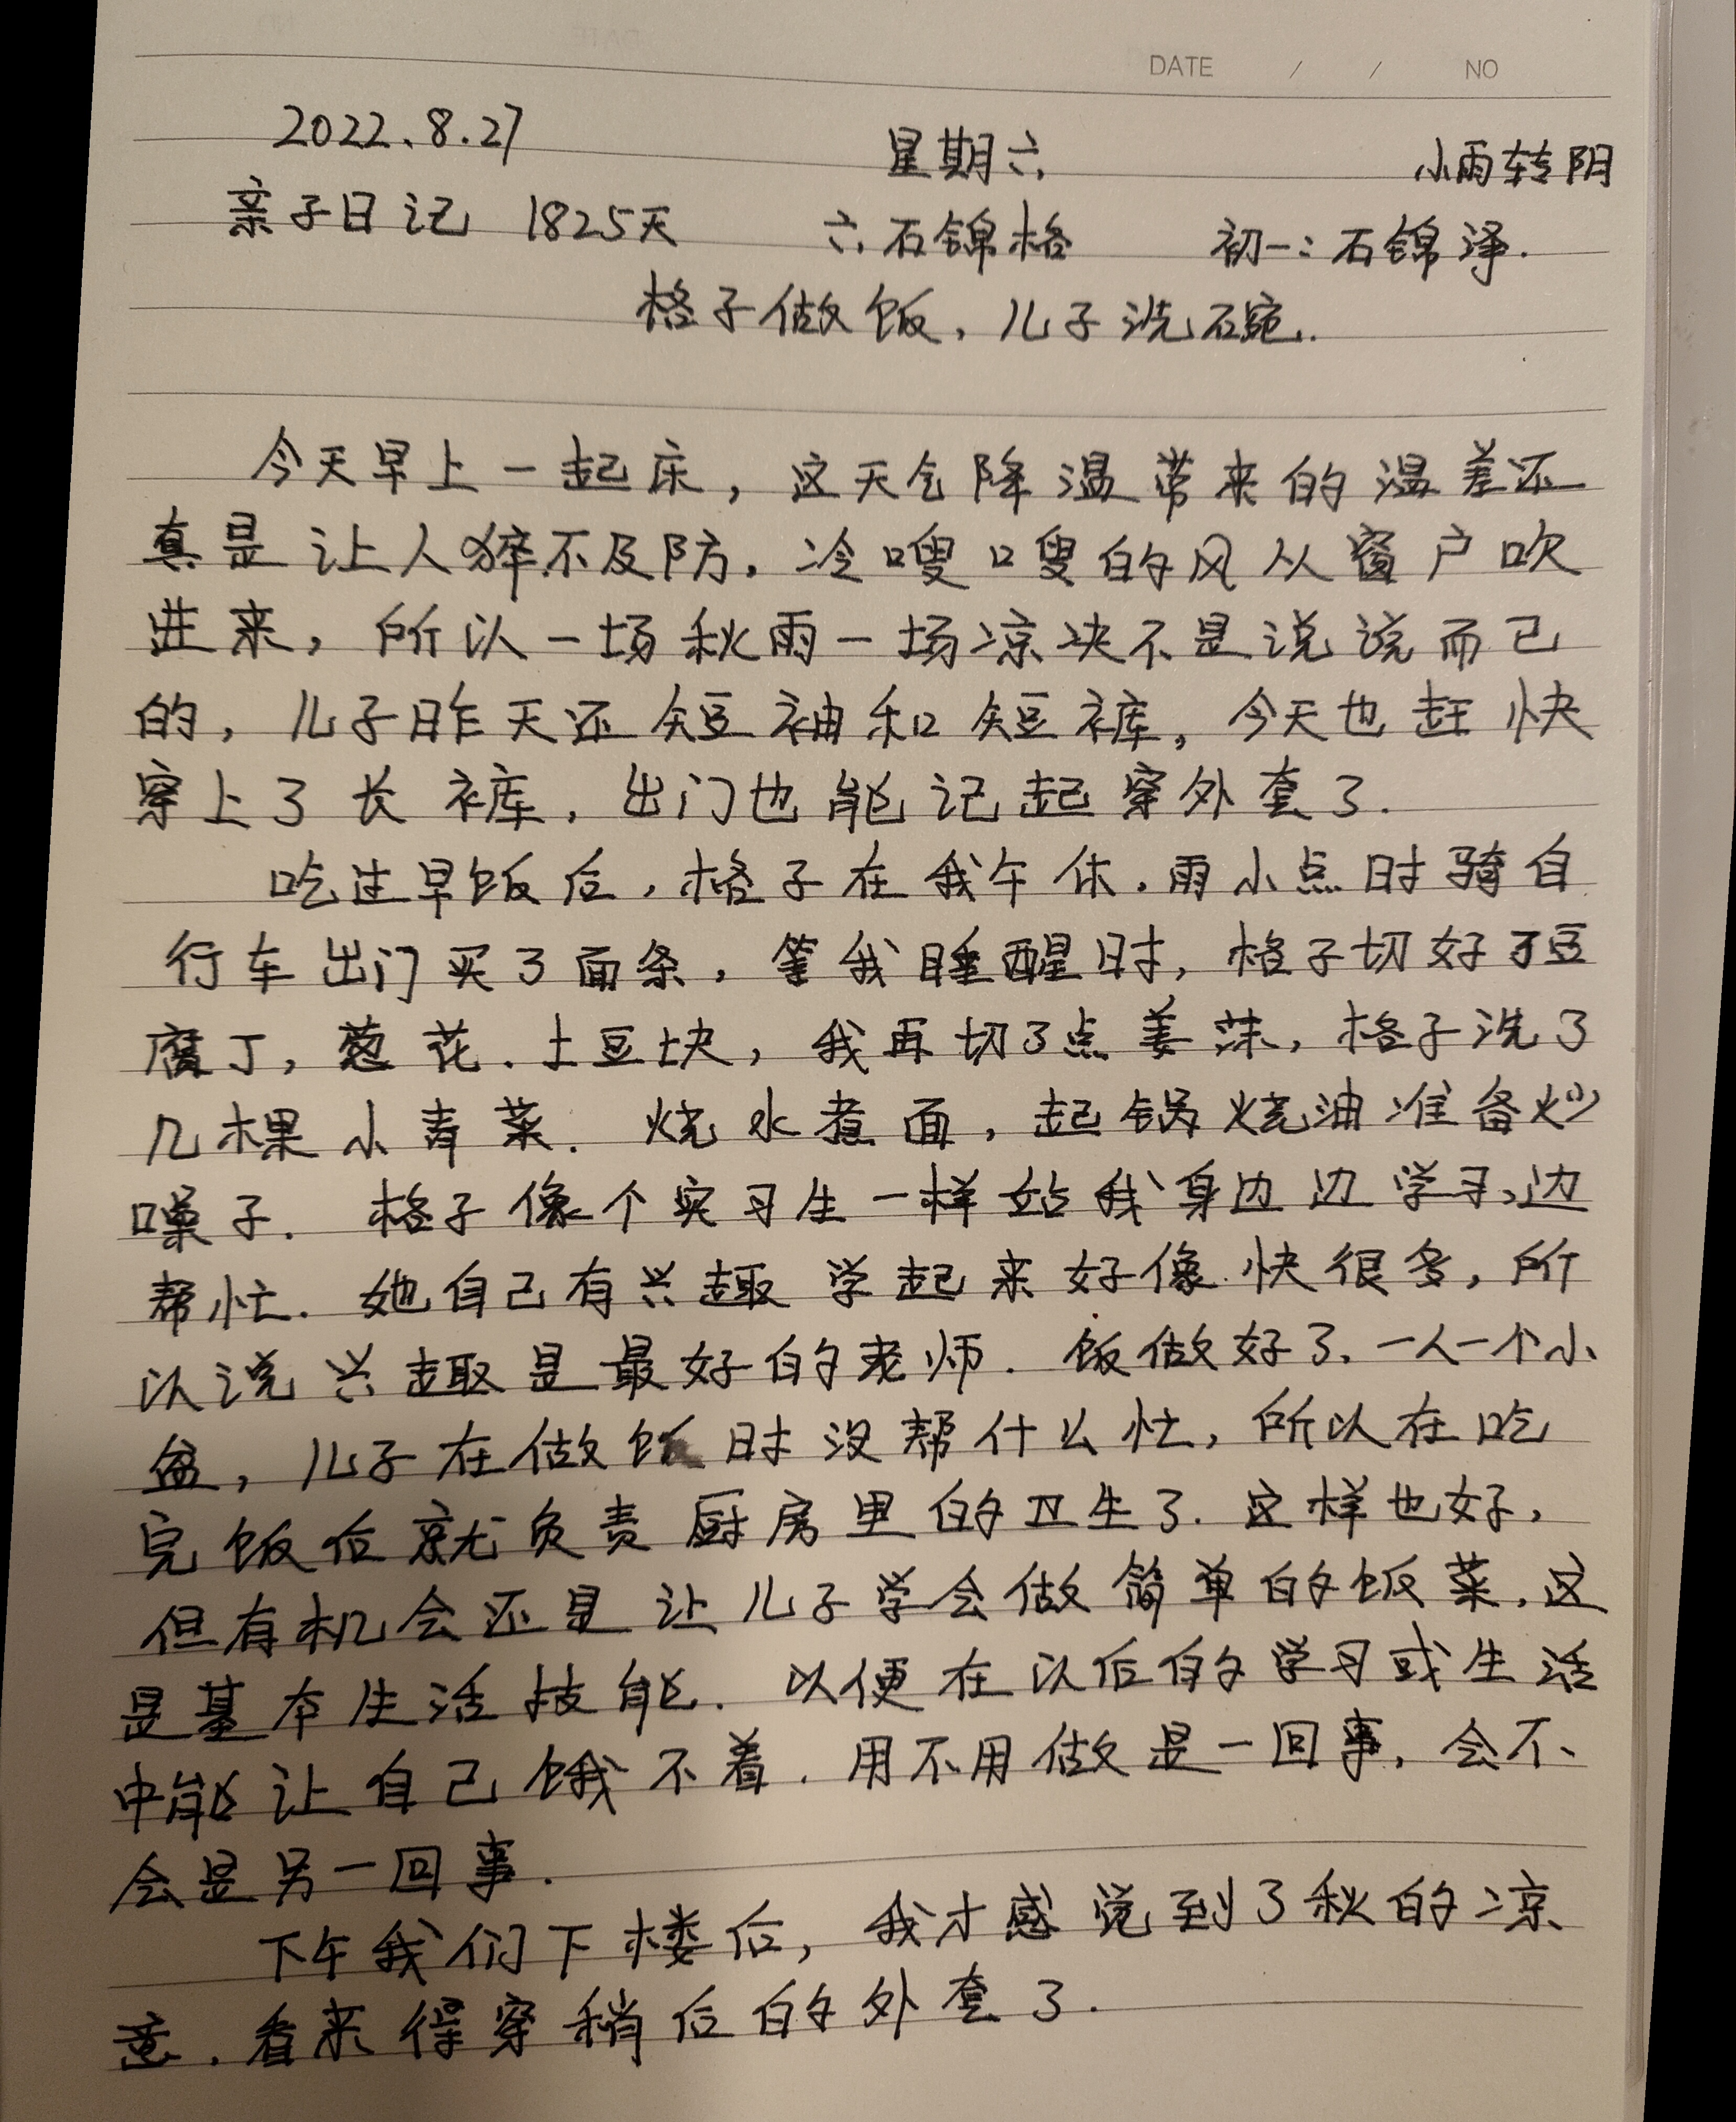 DATE / / NO
2022.8.27 星期六 小雨转阴
亲子日记 1825天 六.石锦格 初一:石锦泽.
格子做饭,儿子洗碗.
今天早上一起床,这天气降温带来的温差还
真是让人猝不及防.冷嗖嗖的风从窗户吹
进来,所以一场秋雨一场凉决不是说说而已
的,儿子昨天还短袖和短裤,今天也赶快
穿上了长裤,出门也能记起穿外套了.
吃过早饭后,格子在我午休.雨小点时骑自
行车出门买了面条,等我睡醒时,格子切好了豆
腐丁,葱花.土豆块,我再切了点姜沫,格子洗了
几棵小青菜.烧水煮面,起锅烧油准备炒
嗓子.格子像个实习生一样站我身边边学习,边
帮忙.她自己有兴趣学起来好像快很多,所
以说兴趣是最好的老师.饭做好了.一人一个小
盆,儿子在做饭时没帮什么忙,所以在吃
完饭后就负责厨房里的卫生了.这样也好,
但有机会还是让儿子学会做简单的饭菜.这
是基本生活技能.以便在以后的学习或生活
中能让自己饿不着.用不用做是一回事,会不
会是另一回事.
下午我们下楼后,我才感觉到了秋的凉
意.看来得穿稍后的外套了.